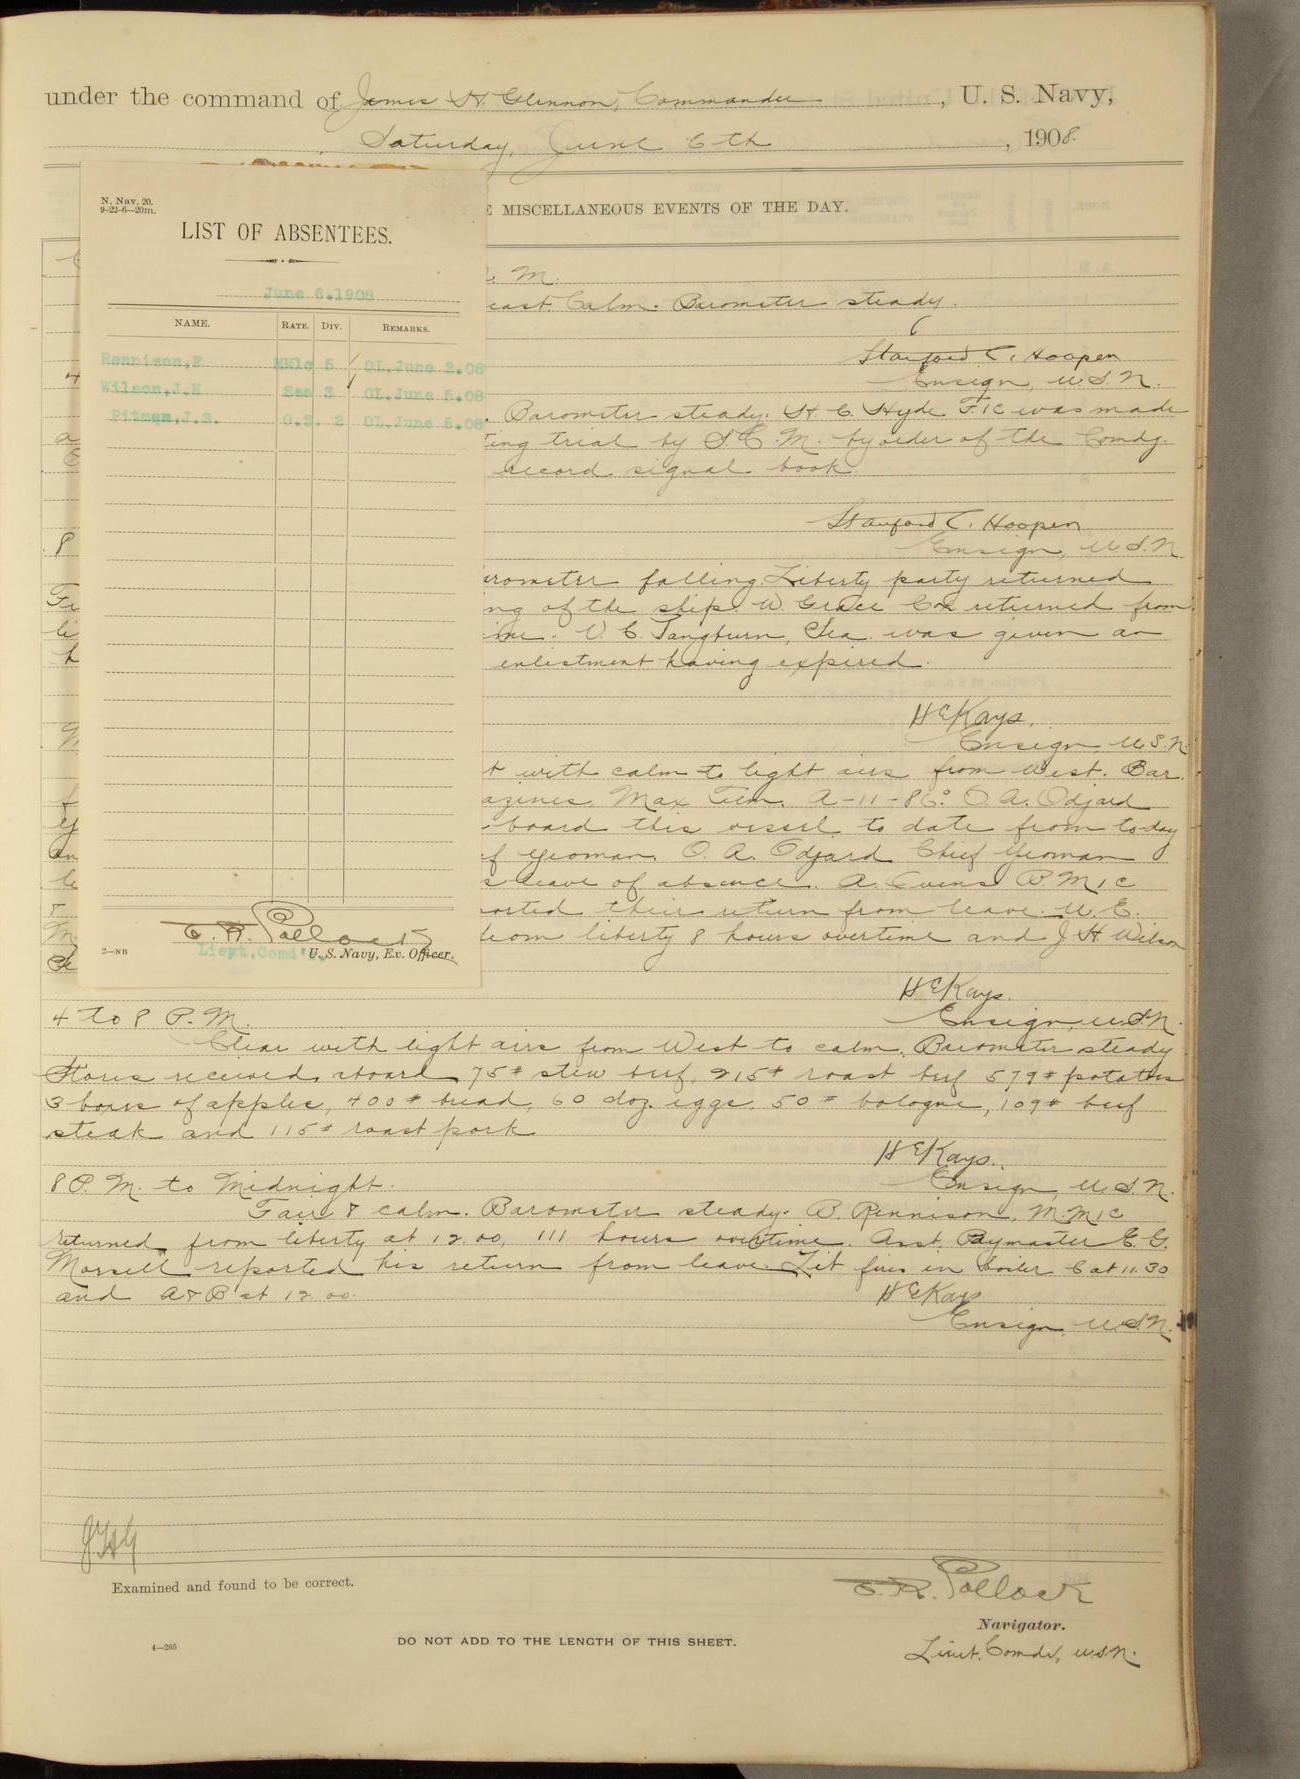 under the command of James H. Glennon, Commander, U. S. Navy,
Saturday, June 6th, 1908.
MISCELLANEOUS EVENTS OF THE DAY.
N. Nav. 20.
9-22-6—20m.
LIST OF ABSENTEES.
June 6.1908
NAME. RATE. DIV. REMARKS.
Rennison,F MM1c 5 OL.June 2.08
Wilson,J.H Sea 3 OL.June 5.08
Pitman,J.S. O.S. 2 OL.June 6.08
Lieut.Comd'r U. S. Navy, Ex. Officer.
2—NB
M.
east. Calm. Barometer steady.
Stanford C. Hooper
Ensign, U.S.N.
Barometer steady. H. C. Hyde F.1c was made
ting trial by S.C.M. by order of the Comdg.
record signal book
Stanford C. Hooper
Ensign, U.S.N.
8
arometer falling. Liberty party returned
ng of the ship. W. Grace Cox returned from
ime. V. C. Tangburn, Sea. was given an
enlistment having expired.
H E Kays.
Ensign, U.S.N.
t with calm to light airs from West. Bar.
azines. Max Tem. A-11-86° O. A. Odjard
board this vessel to date from to-day
ef Yeoman. O. A. Odjard Chief Yeoman
s leave of absence. A. Evens B M 1 c
ported their return from leave. W. E.
from liberty 8 hours overtime and J. H. Wilson
H E Kays.
Ensign, U.S.N.
4 to 8 P. M.
Clear with light airs from West to calm. Barometer steady
Stores received aboard 75# stew beef, 215# roast beef 579# potatoes
3 boxes of apples, 400# bread, 60 doz. eggs, 50# bologne, 109# beef
steak and 115# roast pork
H E Kays.
Ensign, U.S.N.
8 P. M. to Midnight.
Fair & calm. Barometer steady. B. Rennison, M.M.1C
returned from liberty at 12.00, 111 hours overtime. Asst. Paymaster E. G.
Morsell reported his return from leave. Lit fires in boiler C at 11.30
and A & B at 12.00.
H E Kays
Ensign, U.S.N.
JHG
Examined and found to be correct.
E. R. Pollock
Navigator.
Lieut. Comdr, U.S.N.
4—265
DO NOT ADD TO THE LENGTH OF THIS SHEET.